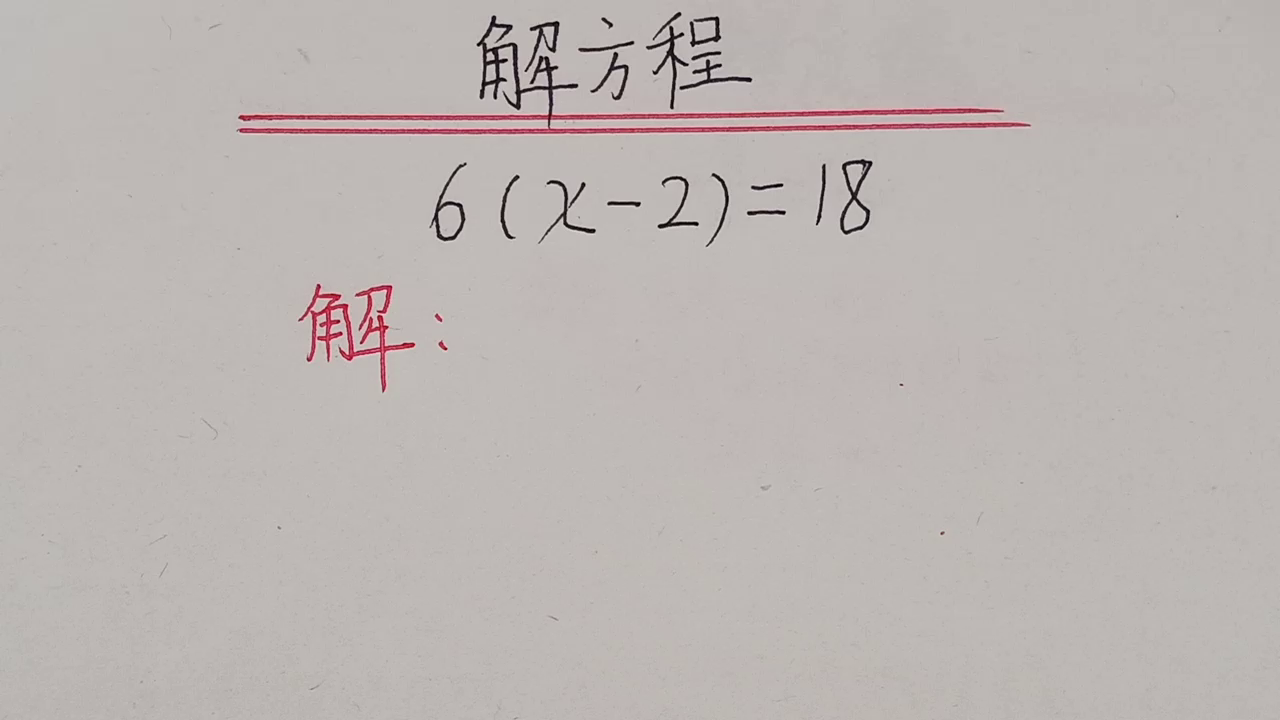 解方程
6(x-2)=18
解: